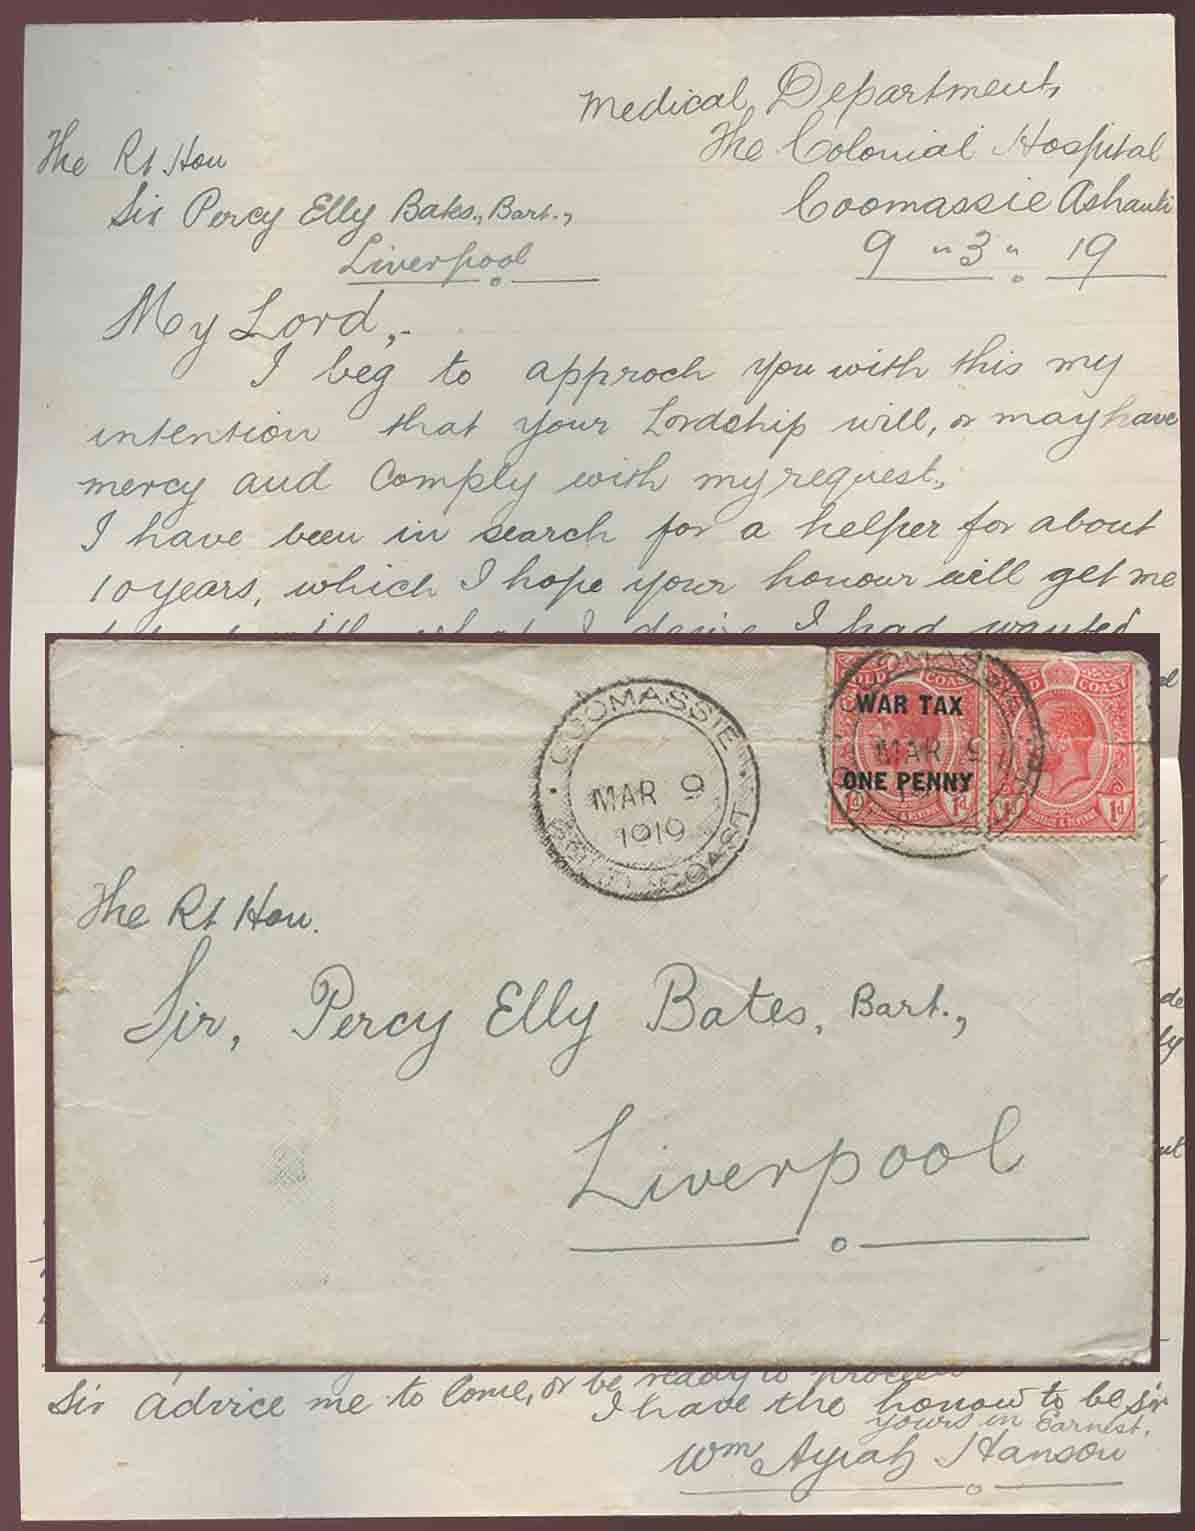 Medical Department,
The Colonial Hospital
Coomassie Ashanti
9 " 3 " 19
The Rt Hon
Sir Percy Elly Bates., Bart.,
Liverpool
My Lord,-
I beg to approch you with this my
intention that your Lordship will, or may have
mercy and Comply with my request.,
I have been in search for a helper for about
10 years, which I hope your honour will get me
I desire I had wanted
COOMASSIE
MAR 9
1919
GOLD COAST
COOMASSIE
MAR 9
GOLD COAST
WAR TAX
ONE PENNY
1d 1d
GOLD COAST
POSTAGE & REVENUE
1d 1d
The Rt Hon.
Sir, Percy Elly Bates, Bart.,
Liverpool
or be ready to proceed
Sir advice me to Come,
I have the honour to be Sir
yours in Earnest.
Wm Ayiah Hanson